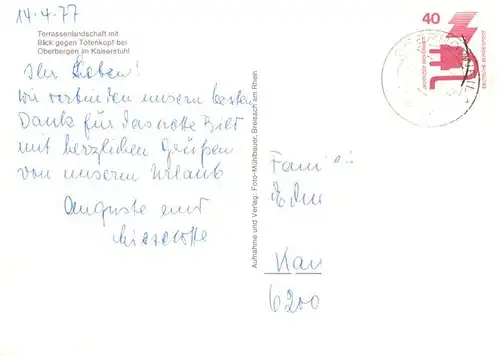 14.4.77
Terrassenlandschaft mit
Blick gegen Totenkopf bei
Oberbergen im Kaiserstuhl
Ihr Lieben!
Wir verbinden unsern besten
Dank für das nette Bild
mit herzlichen Grüßen
von unserm Urlaub
Auguste und
Liselotte
Aufnahme und Verlag: Foto-Mühlbauer, Breisach am Rhein
40
DEUTSCHE BUNDESPOST
Fami
Edm
Kan
6200